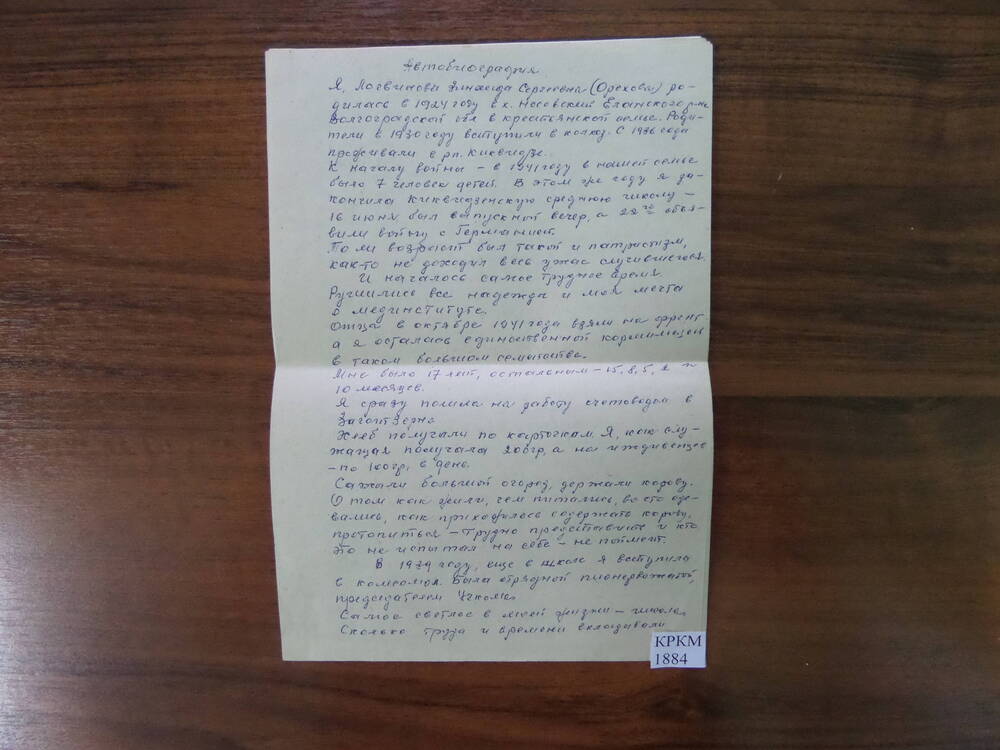 Автобиография.
Я, Логвинова Зинаида Сергеевна (Орехова) ро-
дилась в 1924 году в х. Несовский Еланского р-на
Волгоградской обл в крестьянской семье. Роди-
тели в 1930 году вступили в колхоз. С 1936 года
проживали в рп. Киквидзе.
К началу войны - в 1941 году в нашей семье
было 7 человек детей. В этом же году я за-
кончила Киквидзенскую среднюю школу -
16 июня был выпускной вечер, а 22го объя-
вили войну с Германией.
То ли возраст был такой и патриотизм,
как-то не доходил весь ужас случившегося.
И началось самое трудное время.
Рушились все надежды и моя мечта
о мединституте.
Отца в октябре 1941 года взяли на фронт
а я осталась единственной кормильцем
в таком большом семействе.
Мне было 17 лет, остальным - 15, 8, 5, 2 и
10 месяцев.
Я сразу пошла на работу счетоводом в
Заготзерно.
Хлеб получали по карточкам. Я, как слу-
жащая получала 200гр, а на иждивенцев
- по 100гр, в день.
Сажали большой огород, держали корову.
О том как жили, чем питались, во что оде-
вались, как приходилось содержать корову,
протопиться - трудно представить и кто
это не испытал на себе - не поймет.
В 1939 году, еще в школе я вступила
в комсомол. Была отрядной пионервожатой,
председателем Учкома.
Самое светлое в моей жизни - школа.
Сколько труда и времени вкладывали
КРКМ
1884